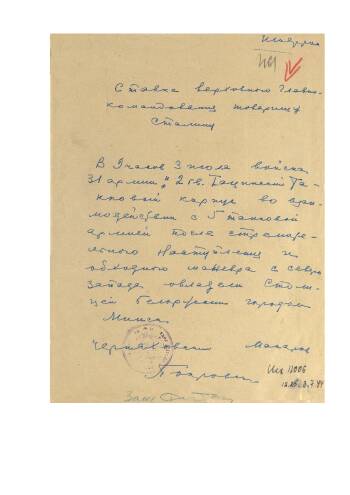 Ставка верховного Главно-
командования товарищу
Сталину
В 9 часов 3 июля войска
31 армии, 2 гв. Тацинский Та-
нковый корпус во взаи-
модействии с 5 танковой
армией после стреми-
тельного наступления и
обходного маневра с северо
запада овладели столи-
цей Белоруссии городом
Минск
Черняховский Макаров
Покровский